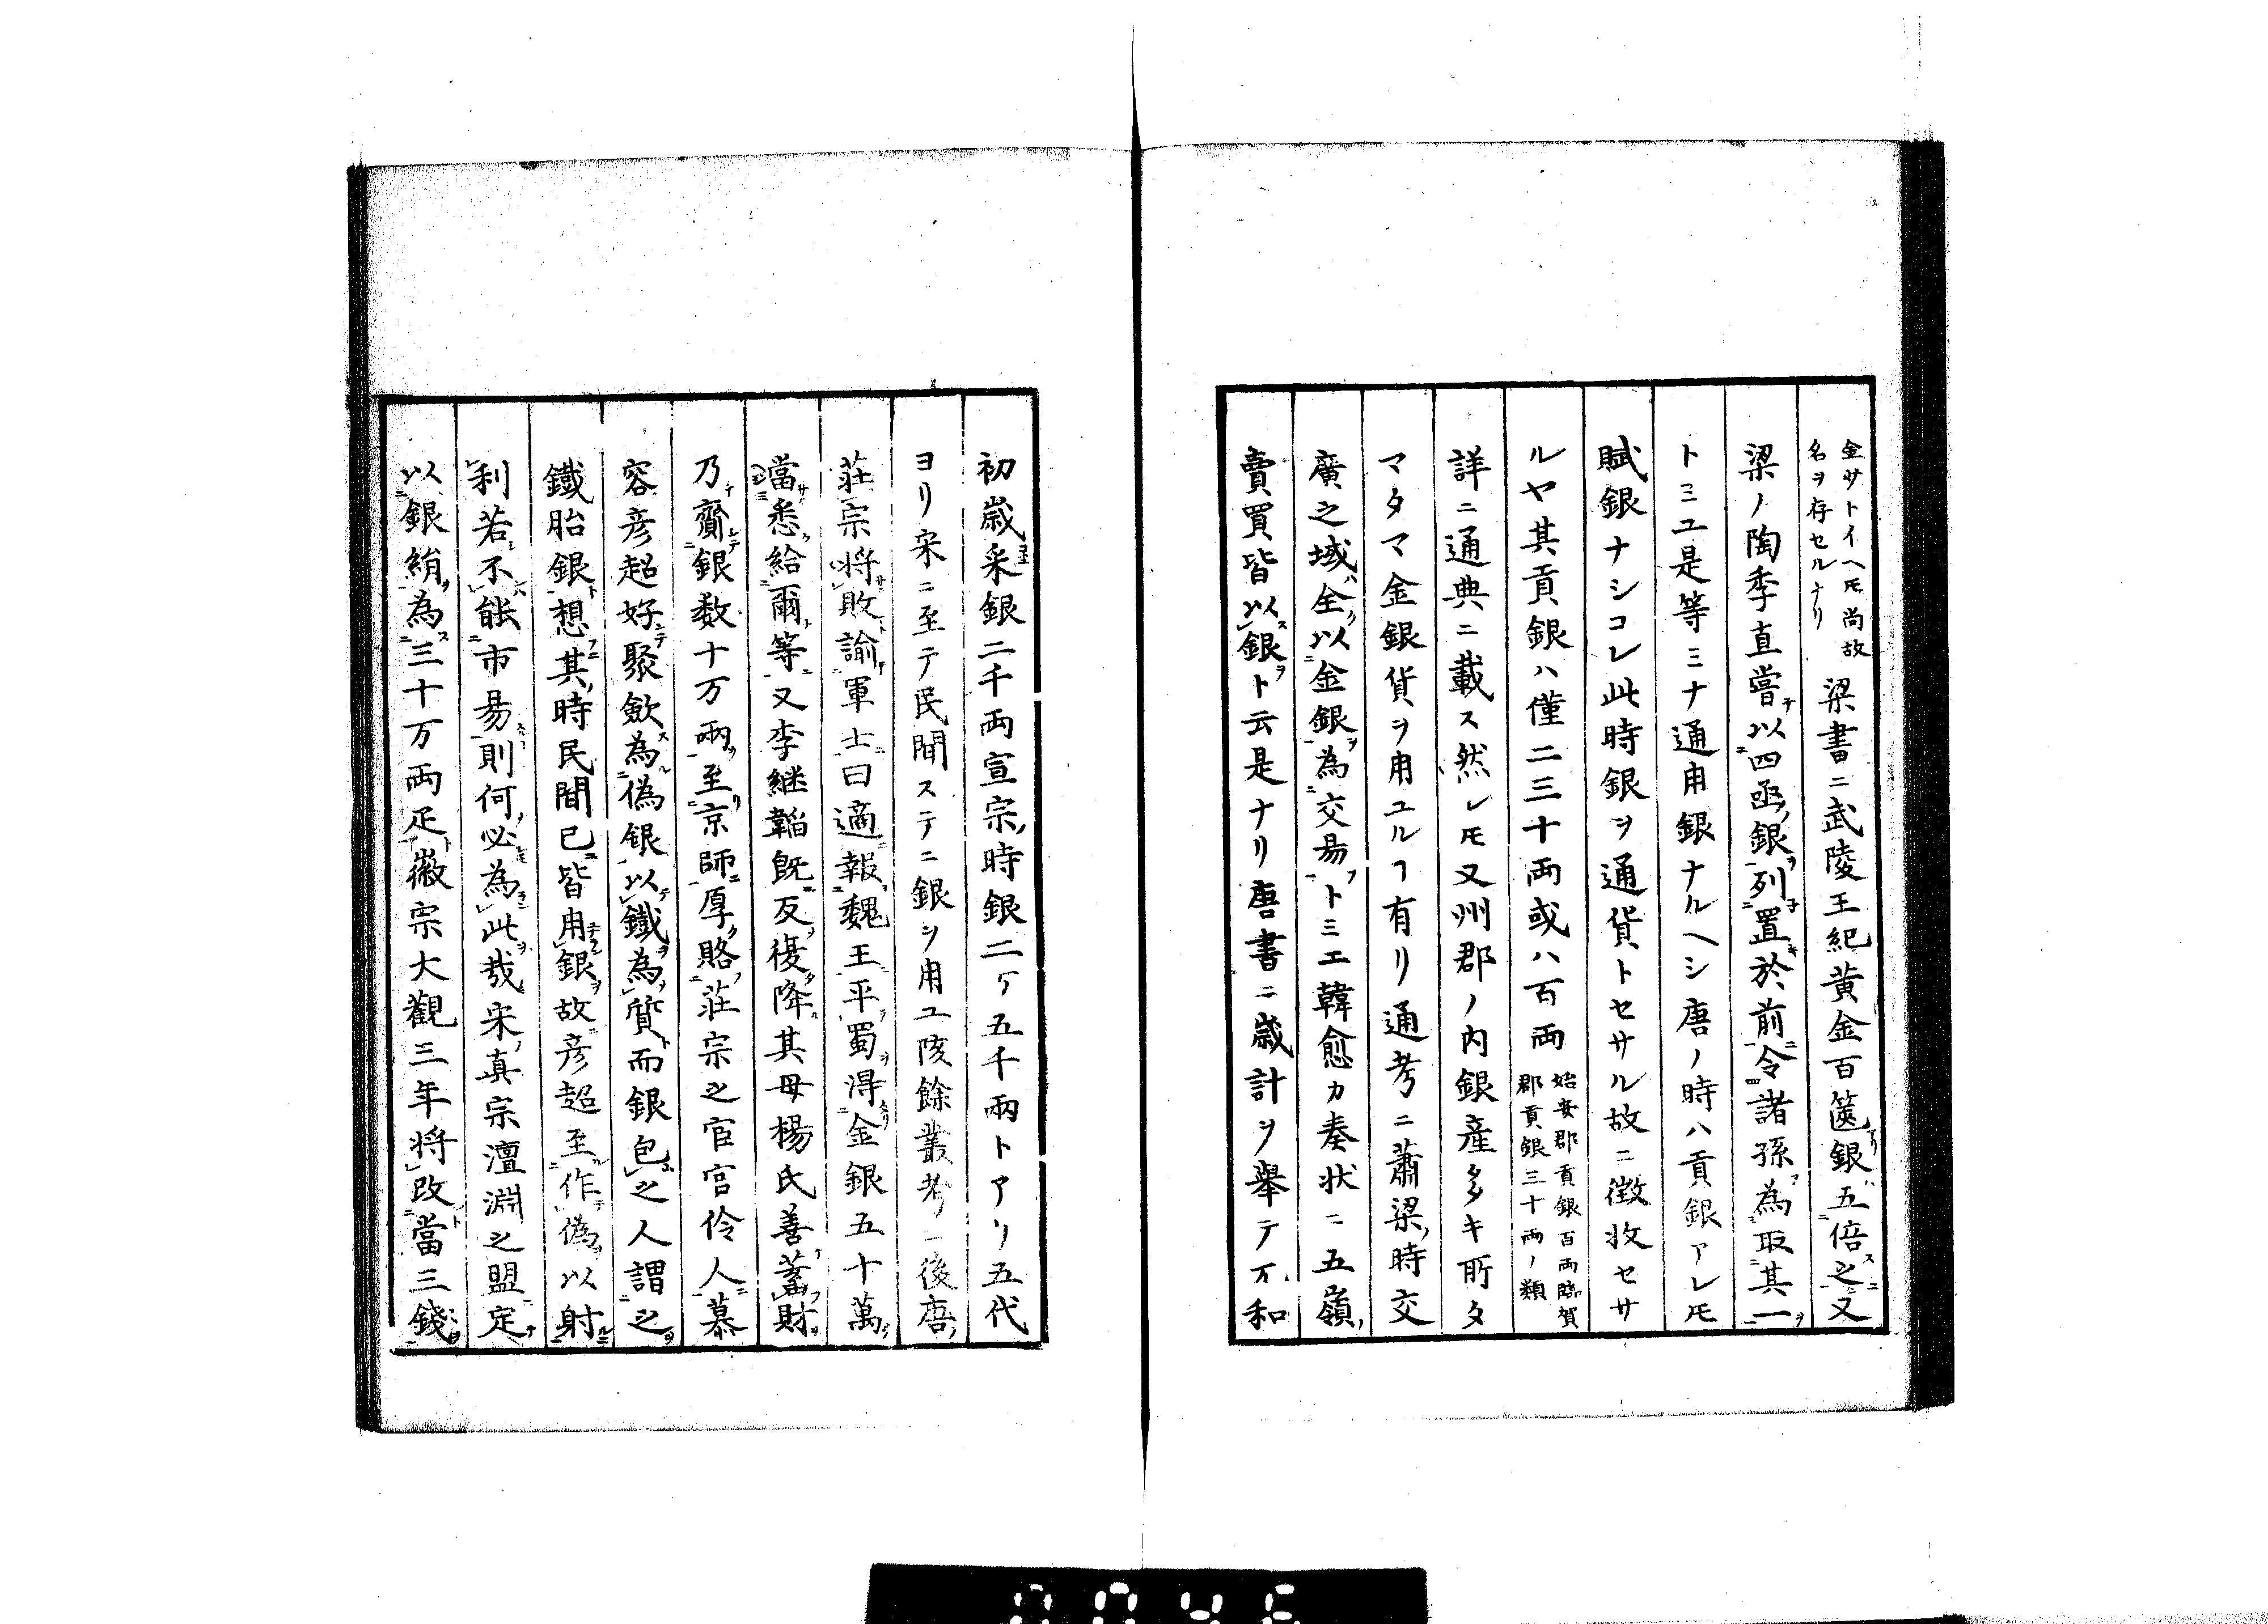 金サトイヘ𪜈尚故
名ヲ存セルナリ
梁書ニ武陵王紀黄金百篋銀五倍之又
梁ノ陶季直嘗以四函銀列置於前令諸孫為取其一
トミユ是等ミナ通用銀ナルヘシ唐ノ時ハ貢銀アレ𪜈
賦銀ナシコレ此時銀ヲ通貨トセサル故ニ徴收セサ
ルヤ其貢銀ハ僅二三十両或ハ百両
始安郡貢銀百両臨賀
郡貢銀三十両ノ類
詳ニ通典ニ載ス然レ𪜈又州郡ノ内銀産多キ所タ
マタマ金銀貨ヲ用ユルヿ有リ通考ニ蕭梁時交
廣之域全以金銀為交易トミエ韓愈カ奏状ニ五嶺
賣買皆以銀ト云是ナリ唐書ニ歳計ヲ舉テ不和
初歳采銀二千両宣宗時銀二ケ五千兩トアリ五代
ヨリ宋ニ至テ民間ステニ銀ヲ用ユ陔餘叢考ニ後唐
荘宗将敗諭軍士曰適報魏王平蜀得金銀五十萬
當悉給爾等又李継韜既反復降其母楊氏善蓄財
乃齎銀数十万兩至京師厚賂荘宗之宦官伶人慕
容彦超好聚歛為偽銀以鐵為質而銀包之人謂之
鐵胎銀想其時民間已皆用銀故彦超至作偽以射
利若不能市易則何必為此哉宋真宗澶淵之盟定
以銀絹為三十万両疋徽宗大觀三年将改當三錢